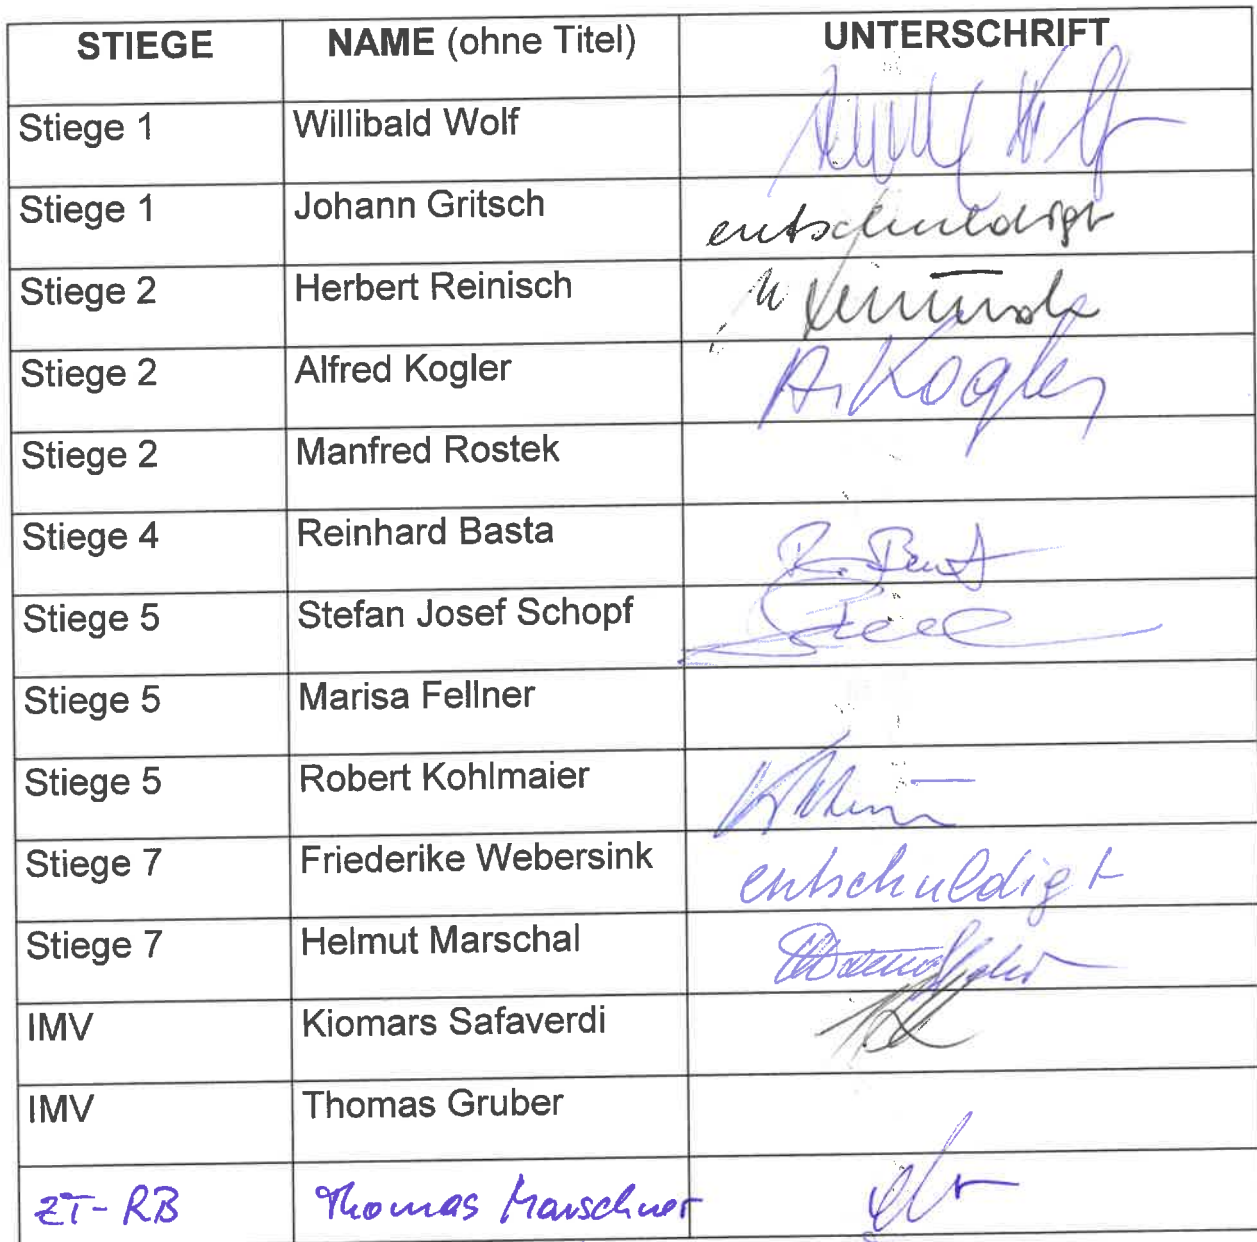 STIEGE NAME (ohne Titel) UNTERSCHRIFT
Stiege 1 Willibald Wolf
Stiege 1 Johann Gritsch entschuldigt
Stiege 2 Herbert Reinisch
Stiege 2 Alfred Kogler A. Kogler
Stiege 2 Manfred Rostek
Stiege 4 Reinhard Basta
Stiege 5 Stefan Josef Schopf
Stiege 5 Marisa Fellner
Stiege 5 Robert Kohlmaier
Stiege 7 Friederike Webersink entschuldigt
Stiege 7 Helmut Marschal
IMV Kiomars Safaverdi
IMV Thomas Gruber
ZT-RB Thomas Marschner